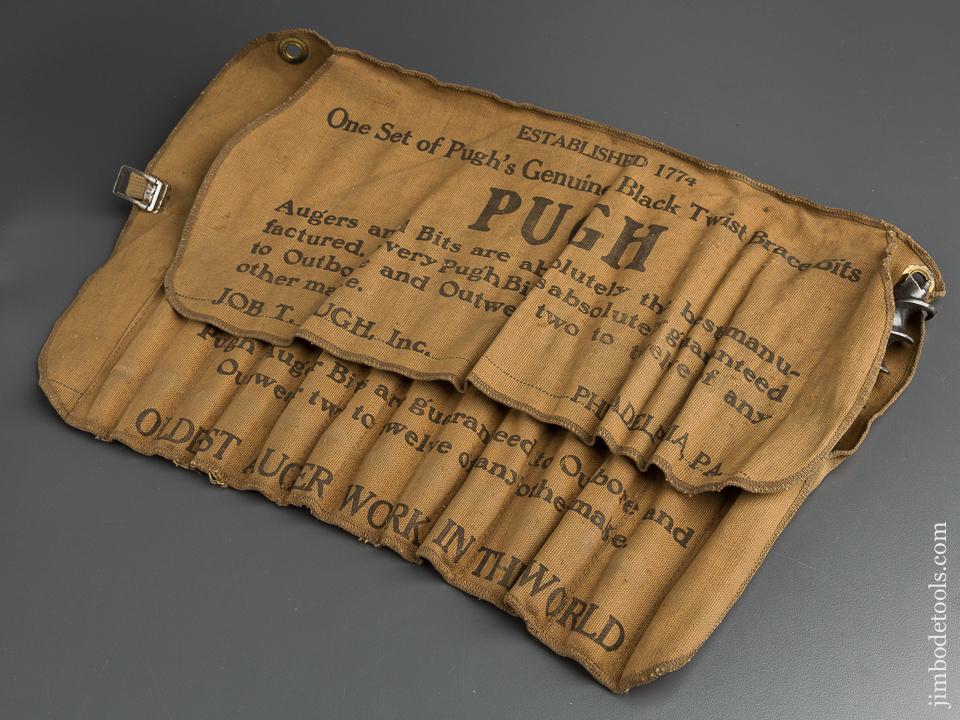 ESTABLISHED 1774
One Set of Pugh's Genuine Black Twist Brace Bits
PUGH
Augers and Bits are absolutely the best manu-
factured. Every Pugh Bit is absolutely guaranteed
to Outbore and Outwear two to twelve of any
other make.
JOB T. PUGH, Inc. PHILADELPHIA, PA.
Pugh Auger Bits are guaranteed to Outbore and
Outwear two to twelve of any other make.
OLDEST AUGER WORK IN THE WORLD
jimbodetools.com